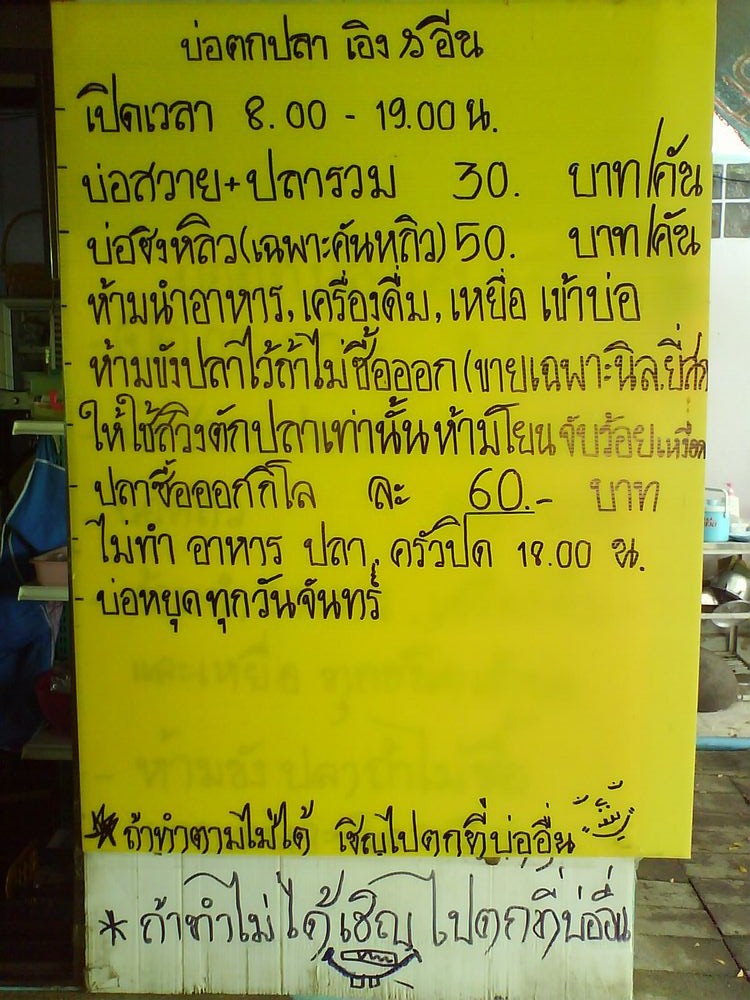 บ่อตกปลา เอิง รอีน
- เปิดเวลา 8.00 - 19.00 น.
- บ่อสวาย+ปลารวม 30. บาท/คัน
- บ่อชิงหลิว(เฉพาะคันหลิว) 50. บาท/คัน
- ห้ามนำอาหาร, เครื่องดื่ม, เหยื่อ เข้าบ่อ
- ห้ามขังปลาไว้ถ้าไม่ซื้อออก (ขายเฉพาะนิล,ยี่สก
- ให้ใช้สวิงตักปลาเท่านั้น ห้ามโยน จับร้อยเหงือก
- ปลาซื้อออกกิโล ละ 60.- บาท
- ไม่ทำ อาหาร ปลา, ครัวปิด 18.00 น.
- บ่อหยุดทุกวันจันทร์
และเหยื่อ
- ห้ามขังปลาถ้าไม่ซื้อ
* ถ้าทำตามไม่ได้ เชิญไปตกที่บ่ออื่น
* ถ้าทำไม่ได้เชิญ ไปตกที่บ่ออื่น